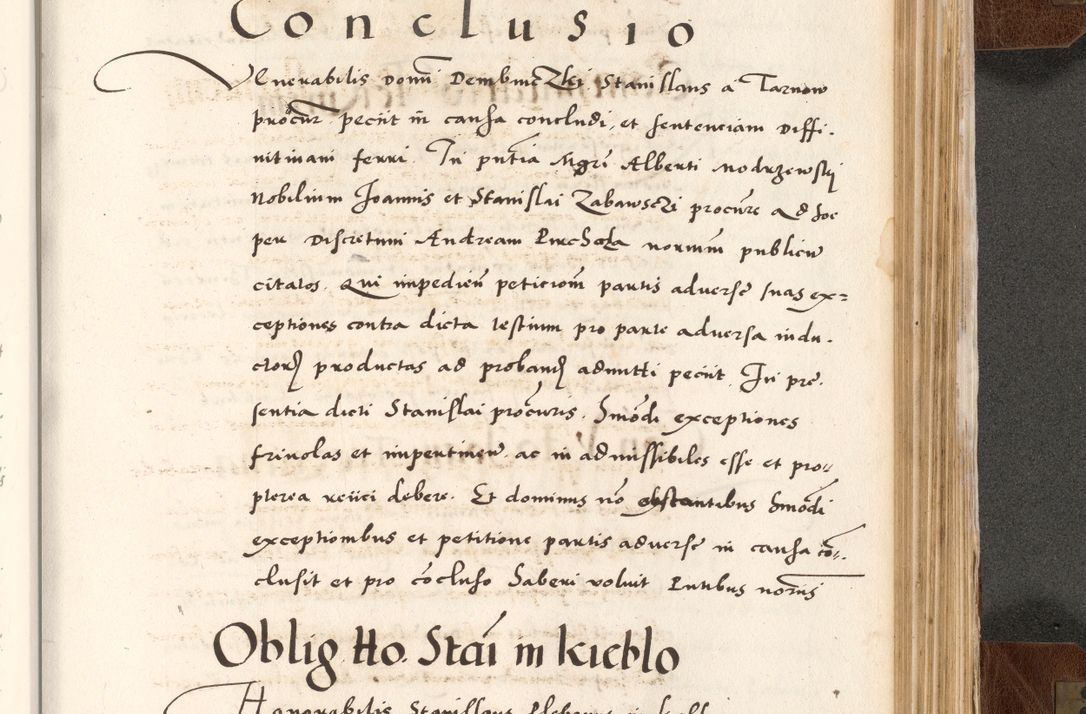 Conclusio
Venerabilis domi Dembinczki Stanislaus a Tarnow
procur peciit in causa concludi, et sentenciam diffi-
nitivam ferri. In pntia Mgri Alberti Modrzewskij
Nobilium Joannis et Stanislai Zabawsczi procure ad hoc
per discretum Andream notium publicu
citatos. Qui impedien peticiom partis adverse suas ex=
ceptiones contra dicta testium pro parte adversa indu-
ctorz productas ad proband admitti peciit. In pre-
sentia dicti Stanislai procuris. hmodi exceptiones
frivolas et impertinen ac in admissibiles esse et pro-
pterea reiici debere. Et dominus no obstantibus hmodi
exceptionibus et petitione partis adverse in causa co-
clusit et pro cocluso haberi voluit Pntibus notriis
Oblig Ho. Stai in kieblo
Honorabilis Stanislaus Plebanus in